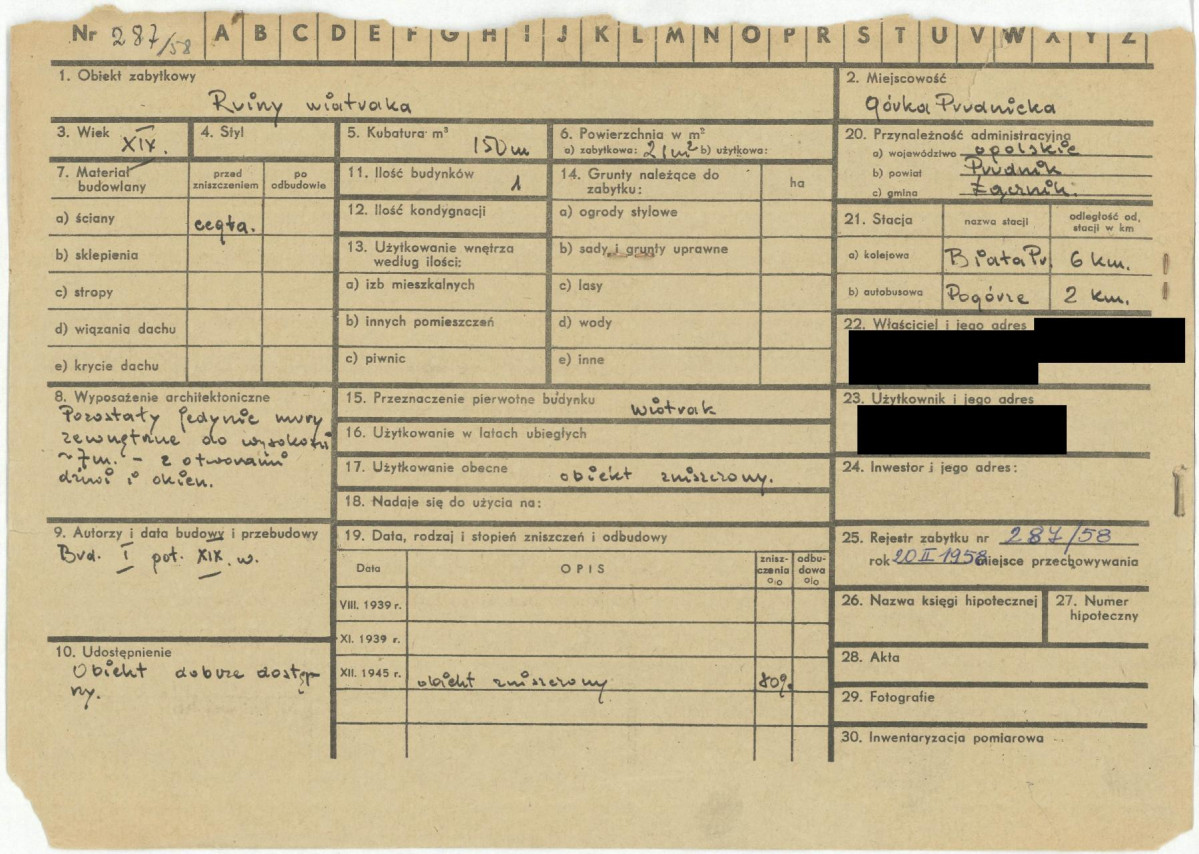 Nr 287/58 A B C D E F G H I J K L M N O P R S T U V W X Y Z
1. Obiekt zabytkowy
Ruiny wiatraka
2. Miejscowość
Górka Prudnicka
3. Wiek
XIX.
4. Styl
5. Kubatura m³
150 m
6. Powierzchnia w m²
a) zabytkowa: 21 m² b) użytkowa:
7. Materiał budowlany
przed zniszczeniem
po odbudowie
a) ściany
cegła.
b) sklepienia
c) stropy
d) wiązania dachu
e) krycie dachu
8. Wyposażenie architektoniczne
Pozostały jedynie mury
zewnętrzne do wysokości
~ 7 m. – z otworami
drzwi i okien.
9. Autorzy i data budowy i przebudowy
Bud. I poł. XIX. w.
10. Udostępnienie
Obiekt dobrze dostęp-
ny.
11. Ilość budynków
1
12. Ilość kondygnacji
13. Użytkowanie wnętrza
według ilości:
a) izb mieszkalnych
b) innych pomieszczeń
c) piwnic
14. Grunty należące do
zabytku:
ha
a) ogrody stylowe
b) sady i grunty uprawne
c) lasy
d) wody
e) inne
15. Przeznaczenie pierwotne budynku
wiatrak
16. Użytkowanie w latach ubiegłych
17. Użytkowanie obecne
obiekt zniszczony.
18. Nadaje się do użycia na:
19. Data, rodzaj i stopień zniszczeń i odbudowy
Data
OPIS
znisz-
czenia
%
odbu-
dowa
%
VIII. 1939 r.
XI. 1939 r.
XII. 1945 r.
obiekt zniszczony
80%
20. Przynależność administracyjna
a) województwo opolskie
b) powiat Prudnik
c) gmina Łącznik.
21. Stacja
nazwa stacji
odległość od,
stacji w km
a) kolejowa
Biała Pr.
6 km.
b) autobusowa
Pogórze
2 km.
22. Właściciel i jego adres
23. Użytkownik i jego adres
24. Inwestor i jego adres:
25. Rejestr zabytku nr 287/58
rok 20 II 1958 miejsce przechowywania
26. Nazwa księgi hipotecznej
27. Numer
hipoteczny
28. Akta
29. Fotografie
30. Inwentaryzacja pomiarowa